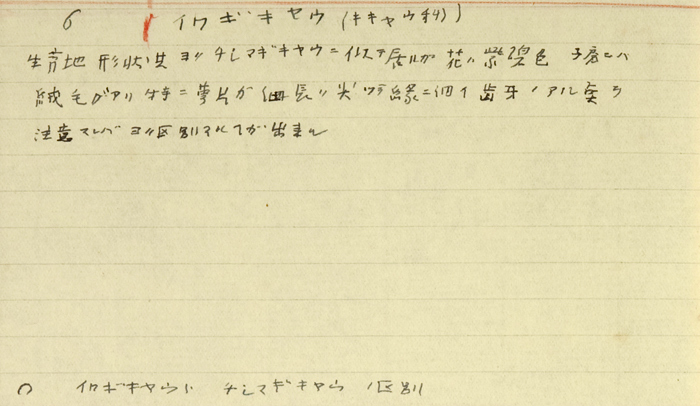 6 イワギキヤウ(キキヤウ科)
生育地 形状共ヨクチシマギキヤウニ似テ居ルガ 花ハ紫碧色 子房ニハ
絨毛ガアリ 特ニ萼片ガ細長ク尖ツテ縁ニ細イ歯牙ノアル点ヲ
注意スレバヨク区別スルコトガ出来ル
○ イワギキヤウト チシマギキヤウノ区別